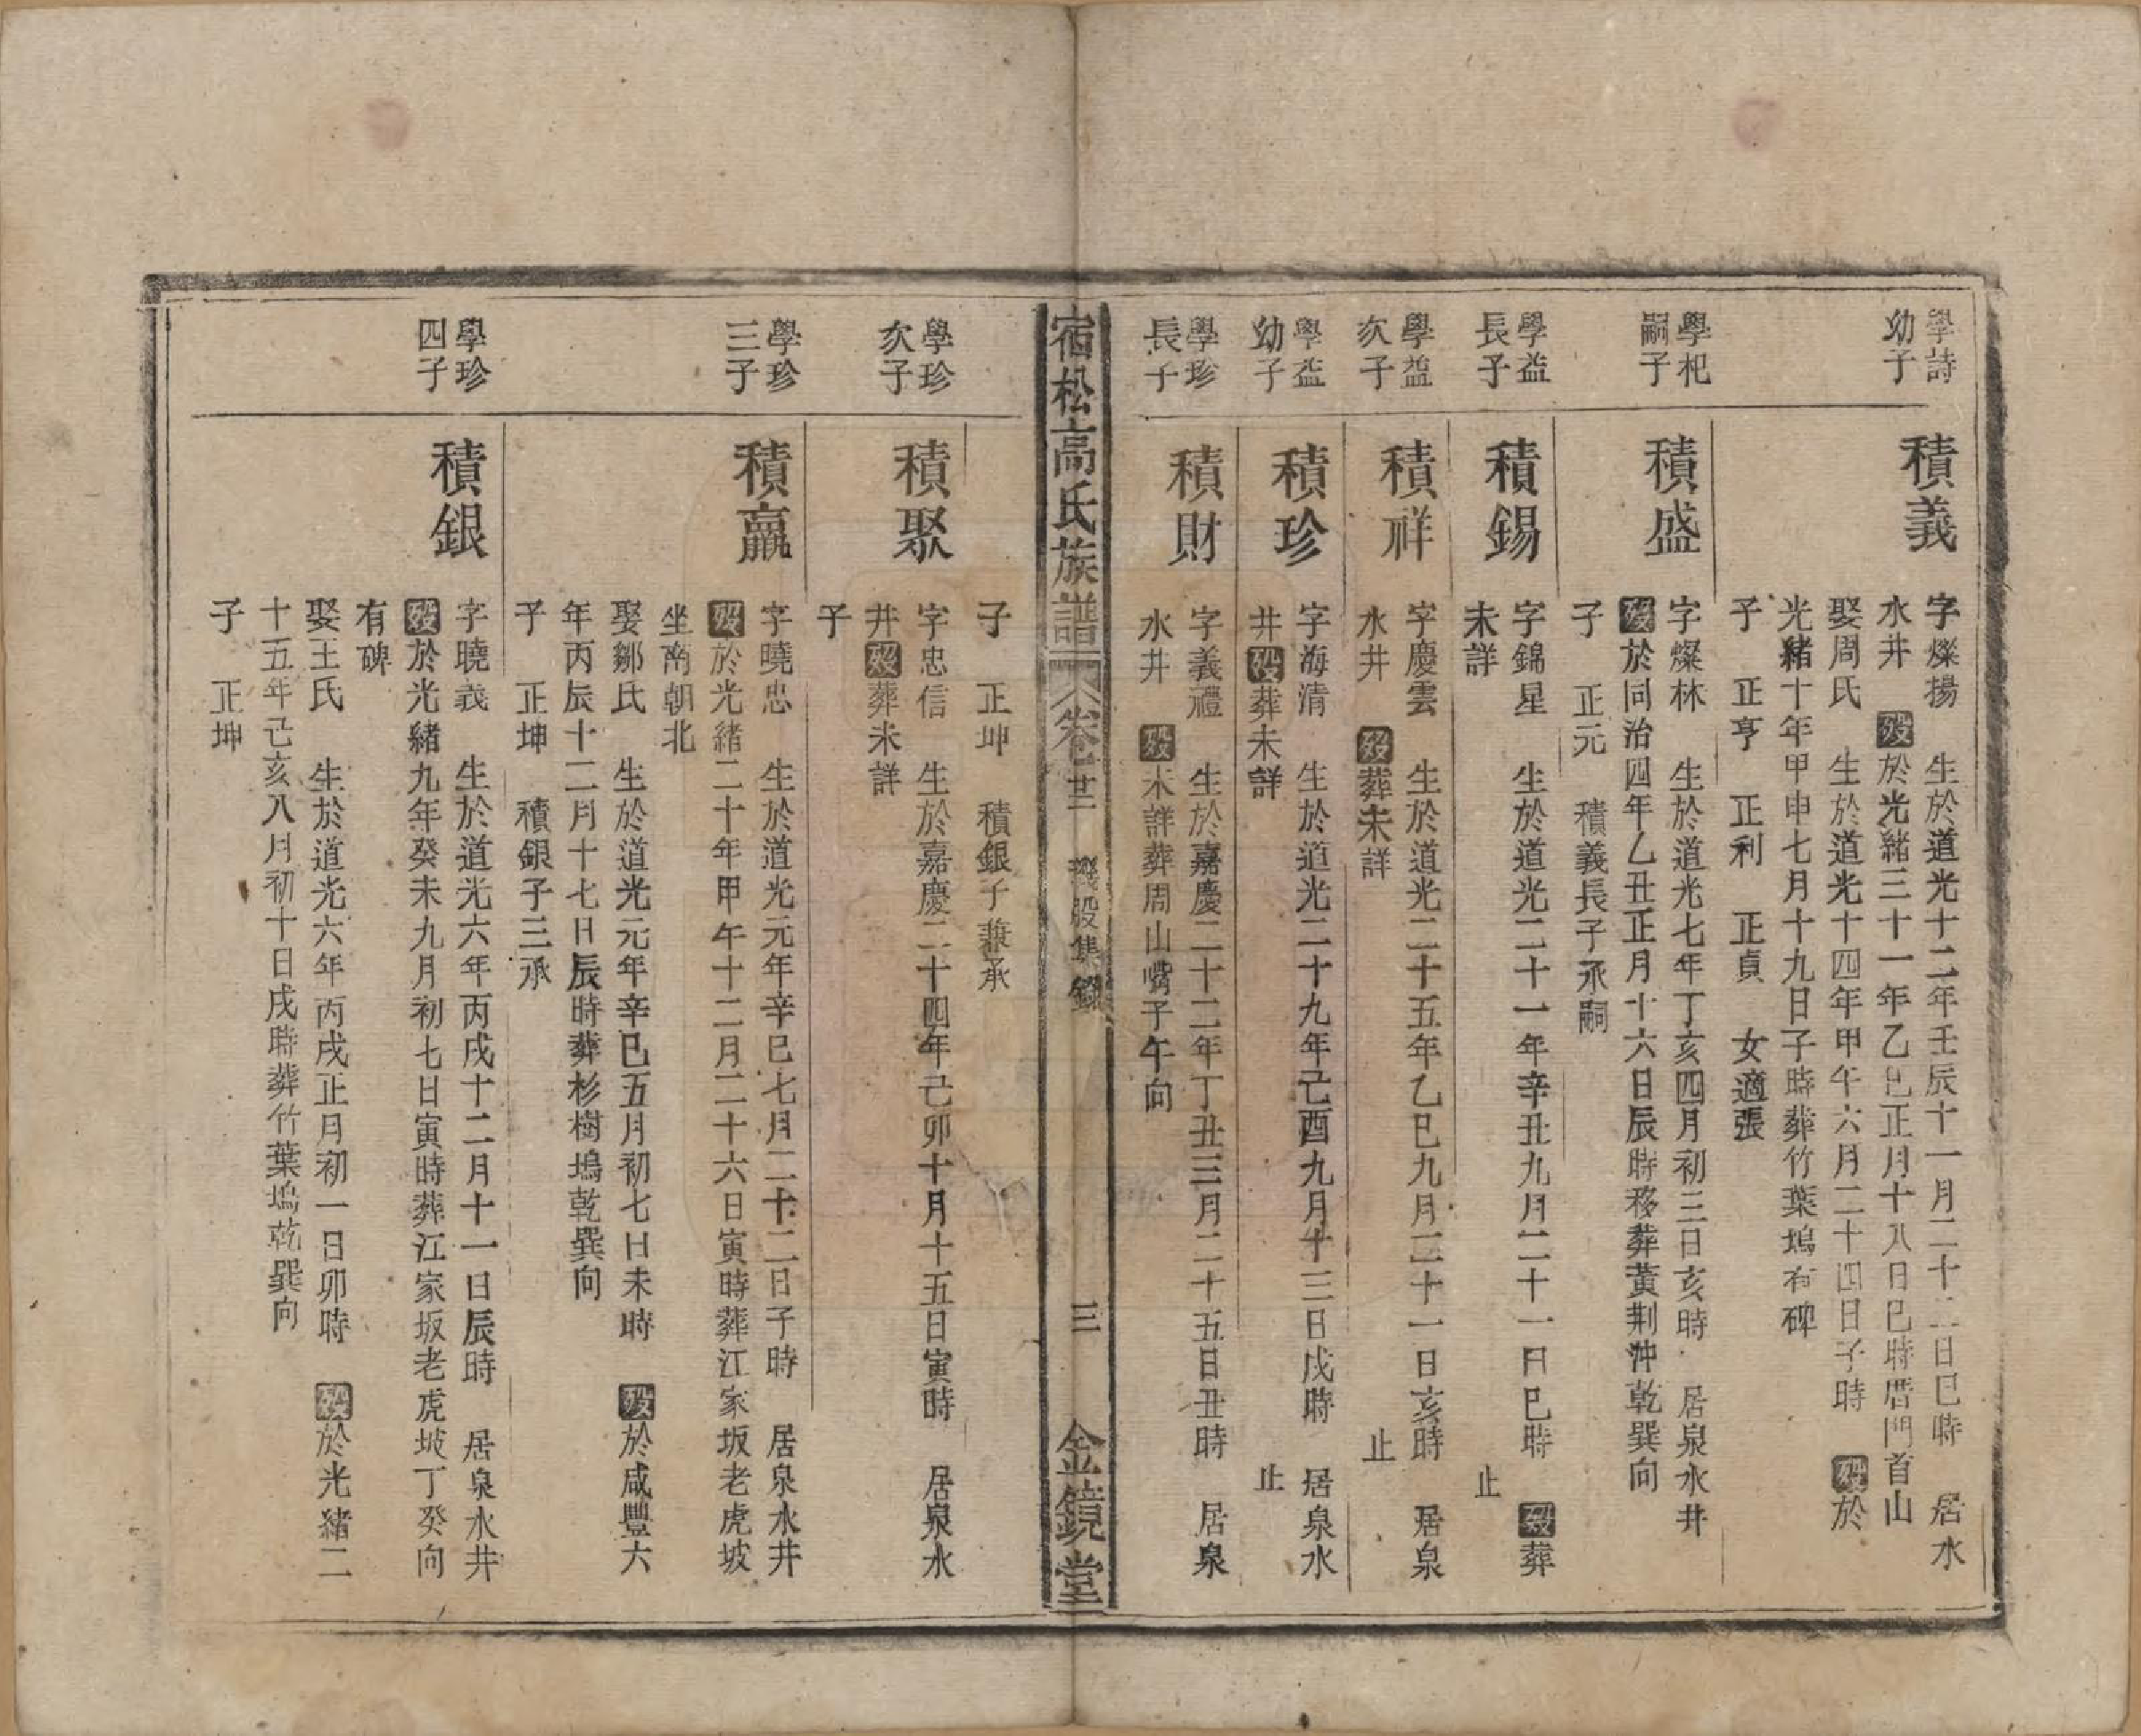 學詩
幼子
積義
字燦揚　生於道光十二年壬辰十一月二十二日巳時　居水
水井　歿於光緒三十一年乙巳正月十八日巳時厝門首山
娶周氏　生於道光十四年甲午六月二十四日子時　歿於
光緒十年甲申七月十九日子時葬竹葉塢有碑
子　正亨　正利　正貞　女適張
學杞
嗣子
積盛
字燦林　生於道光七年丁亥四月初三日亥時　居泉水井
歿於同治四年乙丑正月十六日辰時移葬黃荆冲乾巽向
子　正元　積義長子承嗣
學益
長子
積錫
字錦星　生於道光二十一年辛丑九月二十一日巳時　歿葬
未詳　止
學益
次子
積祥
字慶雲　生於道光二十五年乙巳九月二十一日亥時　居泉
水井　歿葬未詳　止
學益
幼子
積珍
字海清　生於道光二十九年己酉九月十三日戌時　居泉水
井歿葬未詳　止
學珍
長子
積財
字義禮　生於嘉慶二十二年丁丑三月二十五日丑時　居泉
水井　歿未詳葬周山嘴子午向
宿松高氏族譜　卷廿二　璣股集錄　三　金鏡堂
子　正坤　積銀子兼承
學珍
次子
積聚
字忠信　生於嘉慶二十四年己卯十月十五日寅時　居泉水
井歿葬未詳
子
學珍
三子
積贏
字曉忠　生於道光元年辛巳七月二十二日子時　居泉水井
歿於光緒二十年甲午十二月二十六日寅時葬江家坂老虎坡
坐南朝北
娶鄒氏　生於道光元年辛巳五月初七日未時　歿於咸豐六
年丙辰十二月十七日辰時葬杉樹塢乾巽向
子　正坤　積銀子三承
學珍
四子
積銀
字曉義　生於道光六年丙戌十二月十一日辰時　居泉水井
歿於光緒九年癸未九月初七日寅時葬江家坂老虎坡丁癸向
有碑
娶王氏　生於道光六年丙戌正月初一日卯時　歿於光緒二
十五年己亥八月初十日戌時葬竹葉塢乾巽向
子　正坤